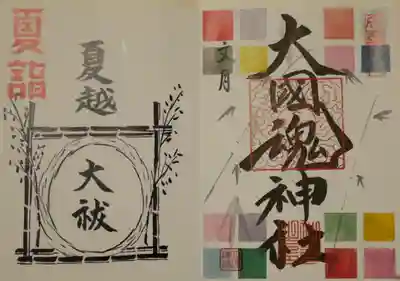 夏詣
夏越
大祓
文月
大國魂神社